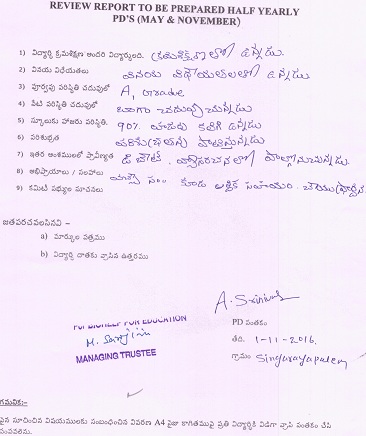 REVIEW REPORT TO BE PREPARED HALF YEARLY
PD'S (MAY & NOVEMBER)
1) విద్యార్థి క్రమశిక్షణ అందరి విద్యార్థులది. క్రమశిక్షణలో ఉన్నాడు.
2) వినయ విధేయతలు వినయ విధేయతలలో ఉన్నాడు
3) పూర్వపు పరిస్థితి చదువులో A, Grade
4) నేటి పరిస్థితి చదువులో బాగా చదువుచున్నాడు
5) స్కూలుకు హాజరు పరిస్థితి. 90% హాజరు కలిగి ఉన్నాడు
6) పరిశుభ్రత పాటిస్తున్నాడు
7) ఇతర అంశములలో ప్రావీణ్యత డిబేట్, వ్యాసరచనలో పాల్గొనుచున్నాడు.
8) అభిప్రాయాలు / సలహాలు
9) కమిటీ సభ్యుల సూచనలు కూడు ఆర్థిక సహాయం
జతపరచవలసినవి –
a) మార్కుల పత్రము
b) విద్యార్థి దాతకు వ్రాసిన ఉత్తరము
A. Srinivas
FOR EDUCATION
PD సంతకం
MANAGING TRUSTEE
తేది. 1-11-2016.
గ్రామం Singarayapalem
గమనిక:-
పైన సూచించిన విషయములకు సంబంధించిన వివరణ A4 సైజు కాగితముపై ప్రతి విద్యార్థికి విడిగా వ్రాసి సంతకం చేసి
పంపవలెను.